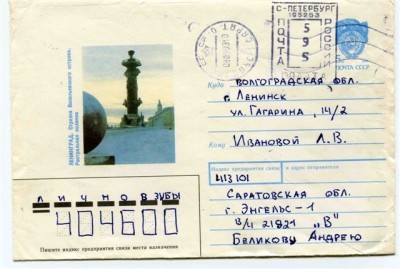 С-ПЕТЕРБУРГ
195253
ПОЧТА
5
9
5
РОССИИ
ПОЧТА СССР
Куда ВОЛГОГРАДСКАЯ ОБЛ.
г. Ленинск
ул. ГАГАРИНА, 14/2
Кому Ивановой Л.В.
ЛЕНИНГРАД. Стрелка Васильевского острова.
Ростральная колонна
Индекс предприятия связи и адрес отправителя
413101
САРАТОВСКАЯ ОБЛ.
г. ЭНГЕЛЬС-1
В/Ч 21821 „В"
БЕЛИКОВУ АНДРЕЮ
ЛИЧНО В ЗУБЫ
404600
Пишите индекс предприятия связи места назначения